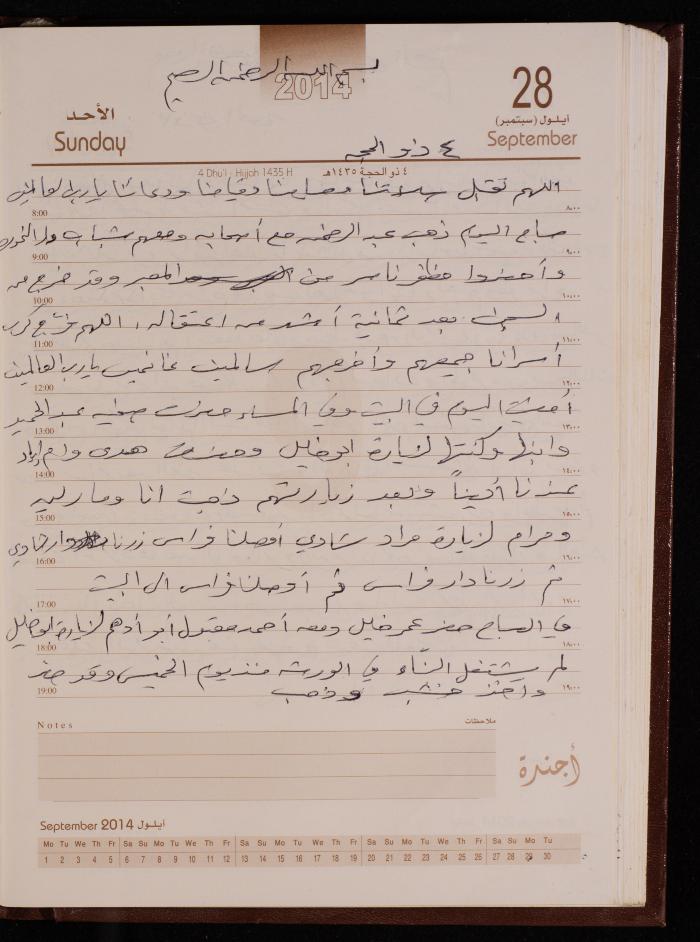 بسم الله الرحمن الرحيم
2014
الأحد
Sunday
28
أيلول (سبتمبر)
September
٤ ذو الحجة
4 Dhu'l - Hijjah 1435 H
٤ ذو الحجة ١٤٣٥هـ
اللهم تقبل صلاتنا وصيامنا وقيامنا ودعائنا يا رب العالمين
8:00 ٨:٠٠
صباح اليوم ذهب عبد الرحمن مع أصحابه ومعهم شباب
9:00 ٩:٠٠
وأحضروا ناسر من المعبر وقد خرج من
10:00 ١٠:٠٠
السجن بعد ثمانية أشهر من اعتقاله، اللهم فرّج كرب
11:00 ١١:٠٠
أسرانا جميعهم وأخرجهم سالمين غانمين يا رب العالمين
12:00 ١٢:٠٠
أمضيت اليوم في البيت وفي المساء حضرت صفية عبد الحميد
13:00 ١٣:٠٠
وابنها وكنتها لزيارة ابو خليل وحضرت هدى وام إياد
14:00 ١٤:٠٠
عندنا أيضاً وبعد زيارتهم ذهبت انا ومارلين
15:00 ١٥:٠٠
ومرام لزيارة مراد شادي أوصلنا فراس زرنا دار شادي
16:00 ١٦:٠٠
ثم زرنا دار فراس ثم أوصلنا فراس الى البيت
17:00 ١٧:٠٠
في الصباح حضر عمر خليل ومعه أحمد مقبول أبو أدهم لزيارة ابو خليل
18:00 ١٨:٠٠
لم يشتغل البنّاء في الورشة منذ يوم الخميس وقد حضر
19:00 ١٩:٠٠
وأخذ خشب وذهب
Notes ملاحظات
أجندة
September 2014 أيلول
Mo Tu We Th Fr Sa Su Mo Tu We Th Fr Sa Su Mo Tu We Th Fr Sa Su Mo Tu We Th Fr Sa Su Mo Tu
1 2 3 4 5 6 7 8 9 10 11 12 13 14 15 16 17 18 19 20 21 22 23 24 25 26 27 28 29 30